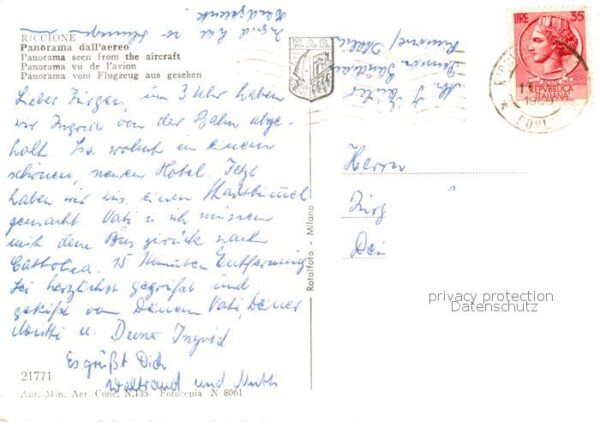 RICCIONE
Panorama dall'aereo
Panorama seen from the aircraft
Panorama vu de l'avion
Panorama vom Flugzeug aus gesehen
Lieber Jürgen, um 3 Uhr haben
wir Ingrid von der Bahn abge-
holt. Sie wohnt in einem
schönen, neuen Hotel. Jetzt
haben wir uns einen Stadtbummel
gemacht. Vati u. ich müssen
mit dem Bus zurück nach
Cattolica. 15 Minuten Entfernung
Sei herzlichst gegrüßt und
geküßt von Deinem Vati, Deiner
Mutti u. Deine Ingrid
Es grüßt Dich
Waltraud und Mutti
21771
Aut. Min. Aer. Conc. N.135 Fotocopia N. 8061
Rotalfoto - Milano
LIRE 35
REPVBBLICA
ITALIANA
Herrn
Jürg
Dei
privacy protection
Datenschutz